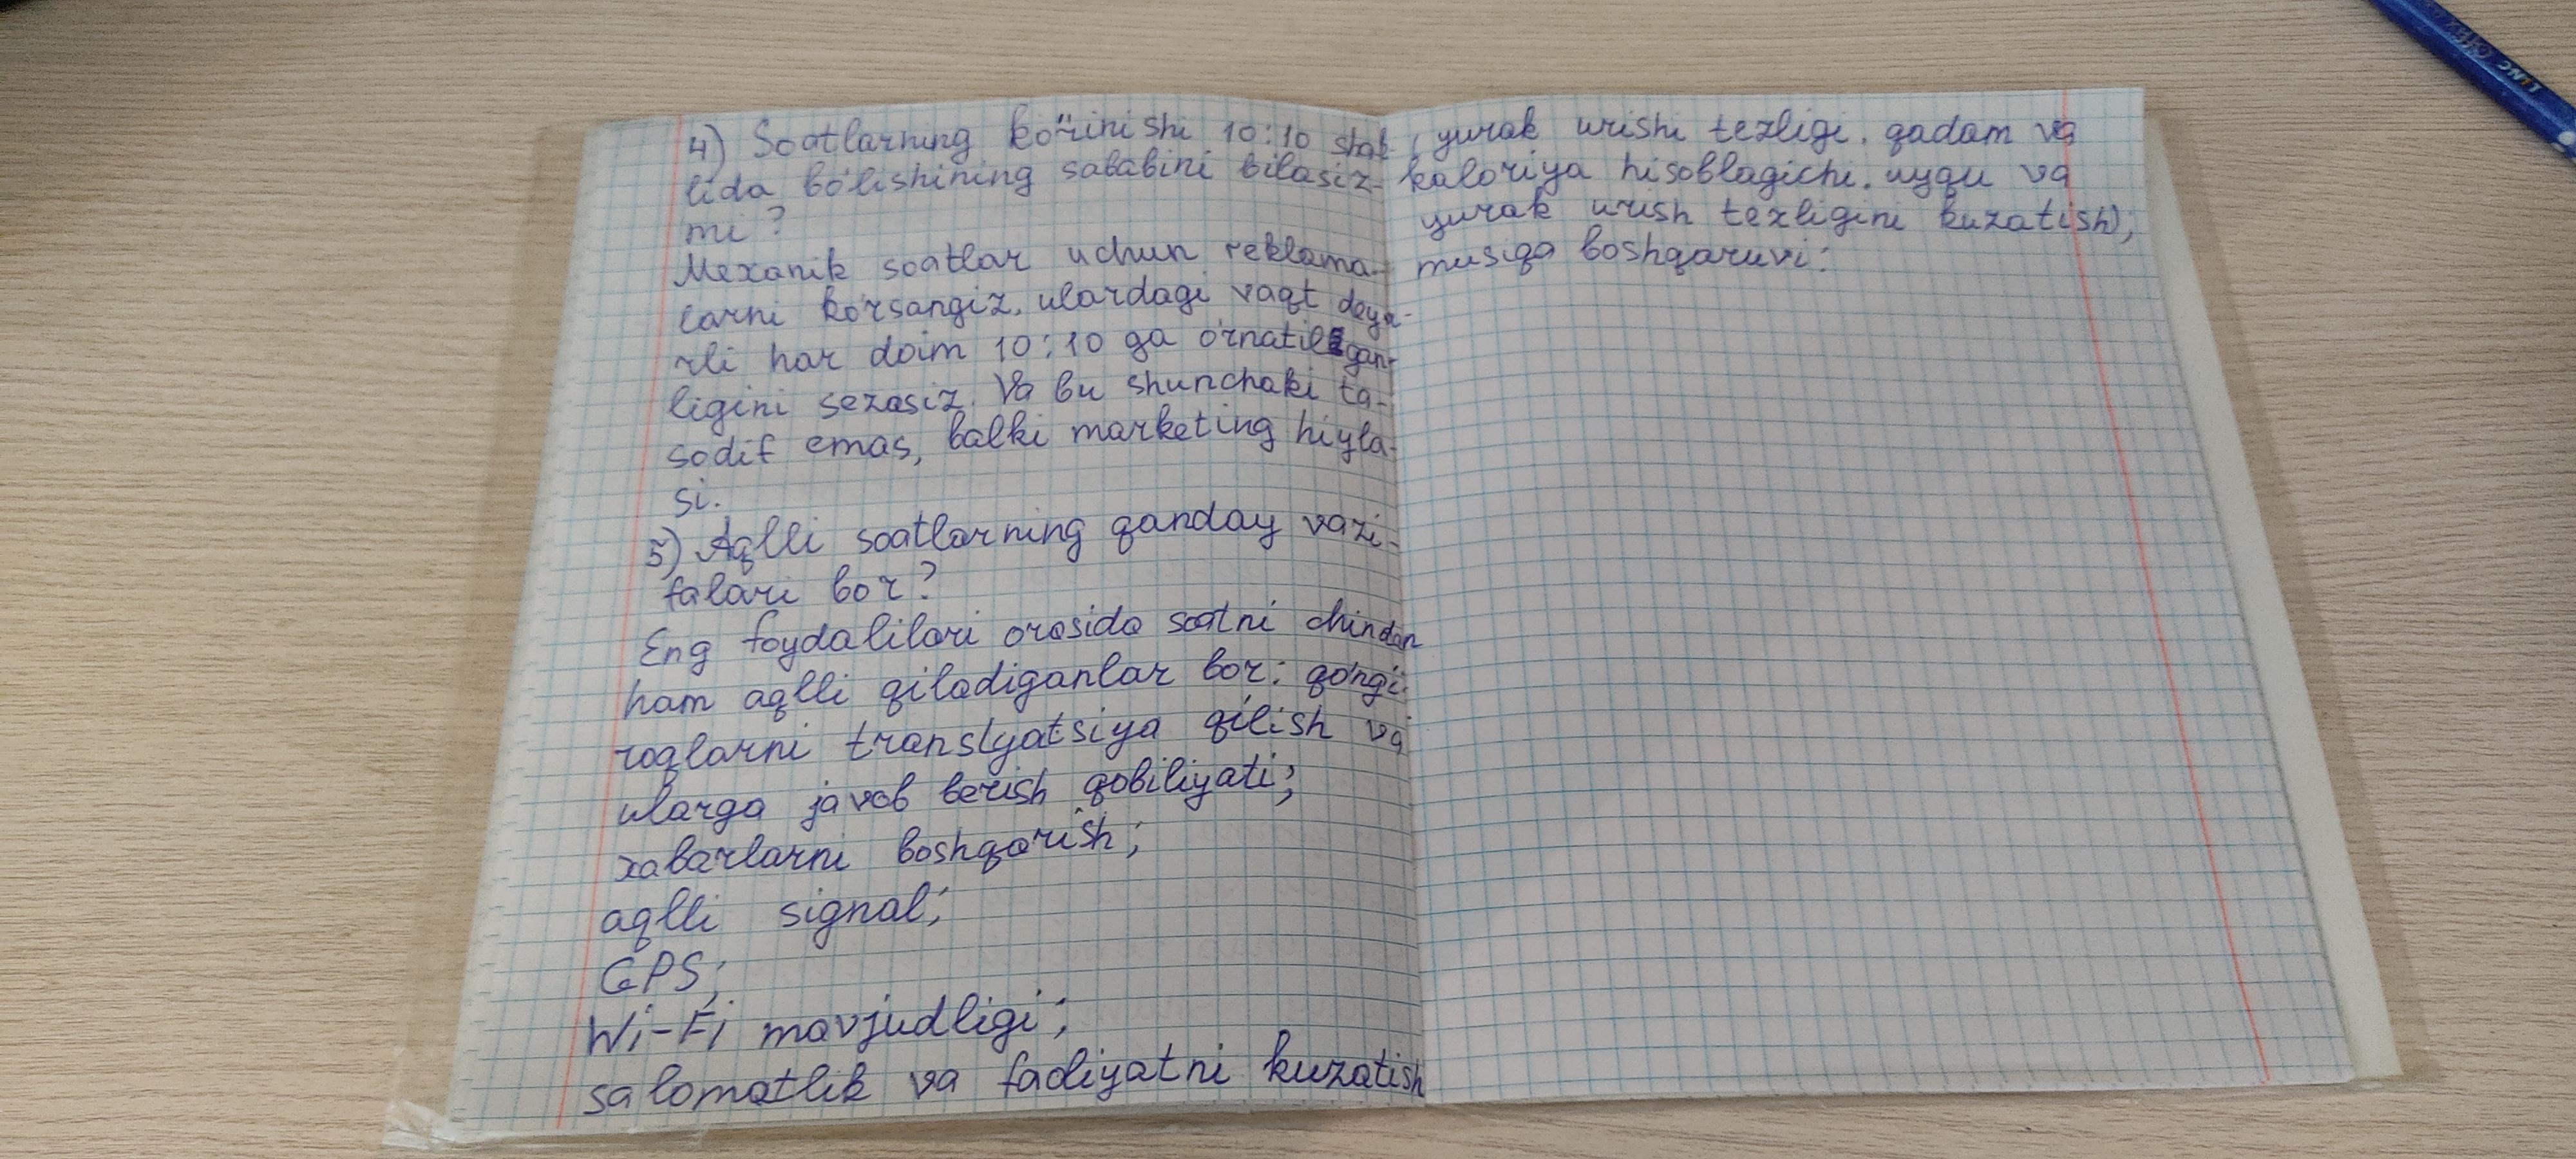 4) Soatlarning ko'rinishi 10:10 shak
lida bo'lishining sababini bilasiz-
mi?
Mexanik soatlar uchun reklama-
larni ko'rsangiz, ulardagi vaqt deya-
rli har doim 10:10 ga o'rnatilgan-
ligini sezasiz. Va bu shunchaki ta-
sodif emas, balki marketing hiyla-
si.
5) Aqlli soatlarning qanday vazi-
falari bor?
Eng foydalilari orasida soatni chindan
ham aqlli qiladiganlar bor: qo'ngi-
roqlarni translyatsiya qilish va
ularga javob berish qobiliyati;
xabarlarni boshqarish;
aqlli signal;
GPS;
Wi-Fi mavjudligi;
salomatlik va faoliyatni kuzatish
(yurak urishi tezligi. qadam va
kaloriya hisoblagichi. uyqu va
yurak urish tezligini kuzatish);
musiqa boshqaruvi:
LINC